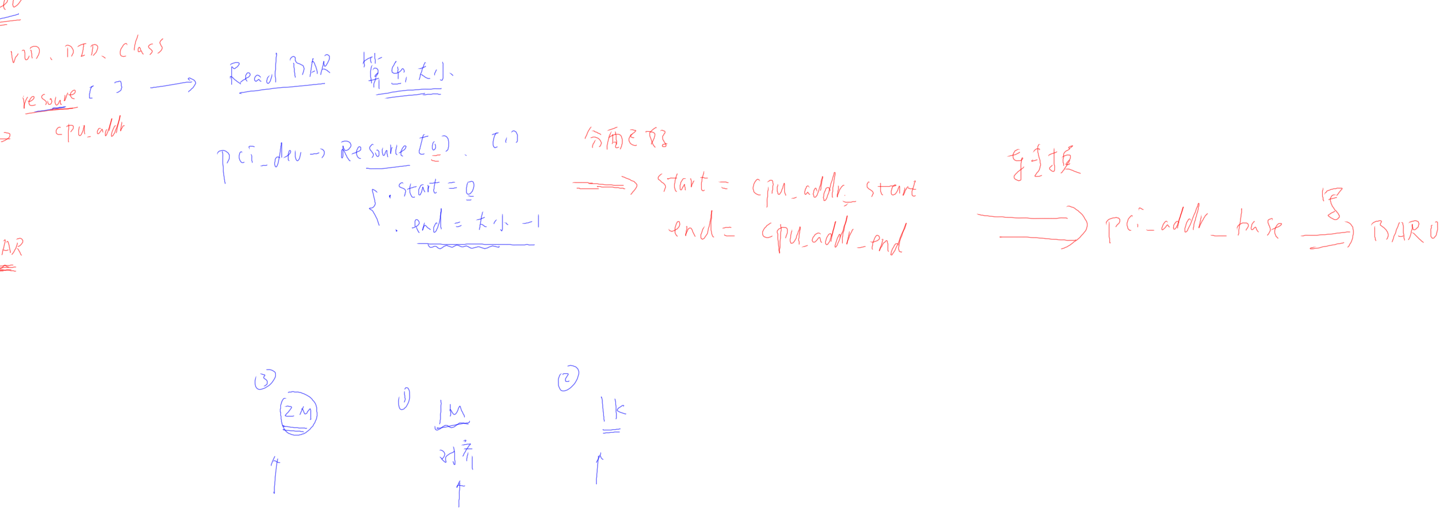 VID、DID、Class
resoure [ ] → Read BAR 算出大小.
cpu_addr
pci_dev → Resource [0]. [1]
.start = 0
.end = 大小 -1
分配之后
⇒ start = cpu_addr_start
end = cpu_addr_end
转换
⇒ pci_addr_base
写
⇒ BAR0
AR
③ ① ②
2M 1M 1K
对齐